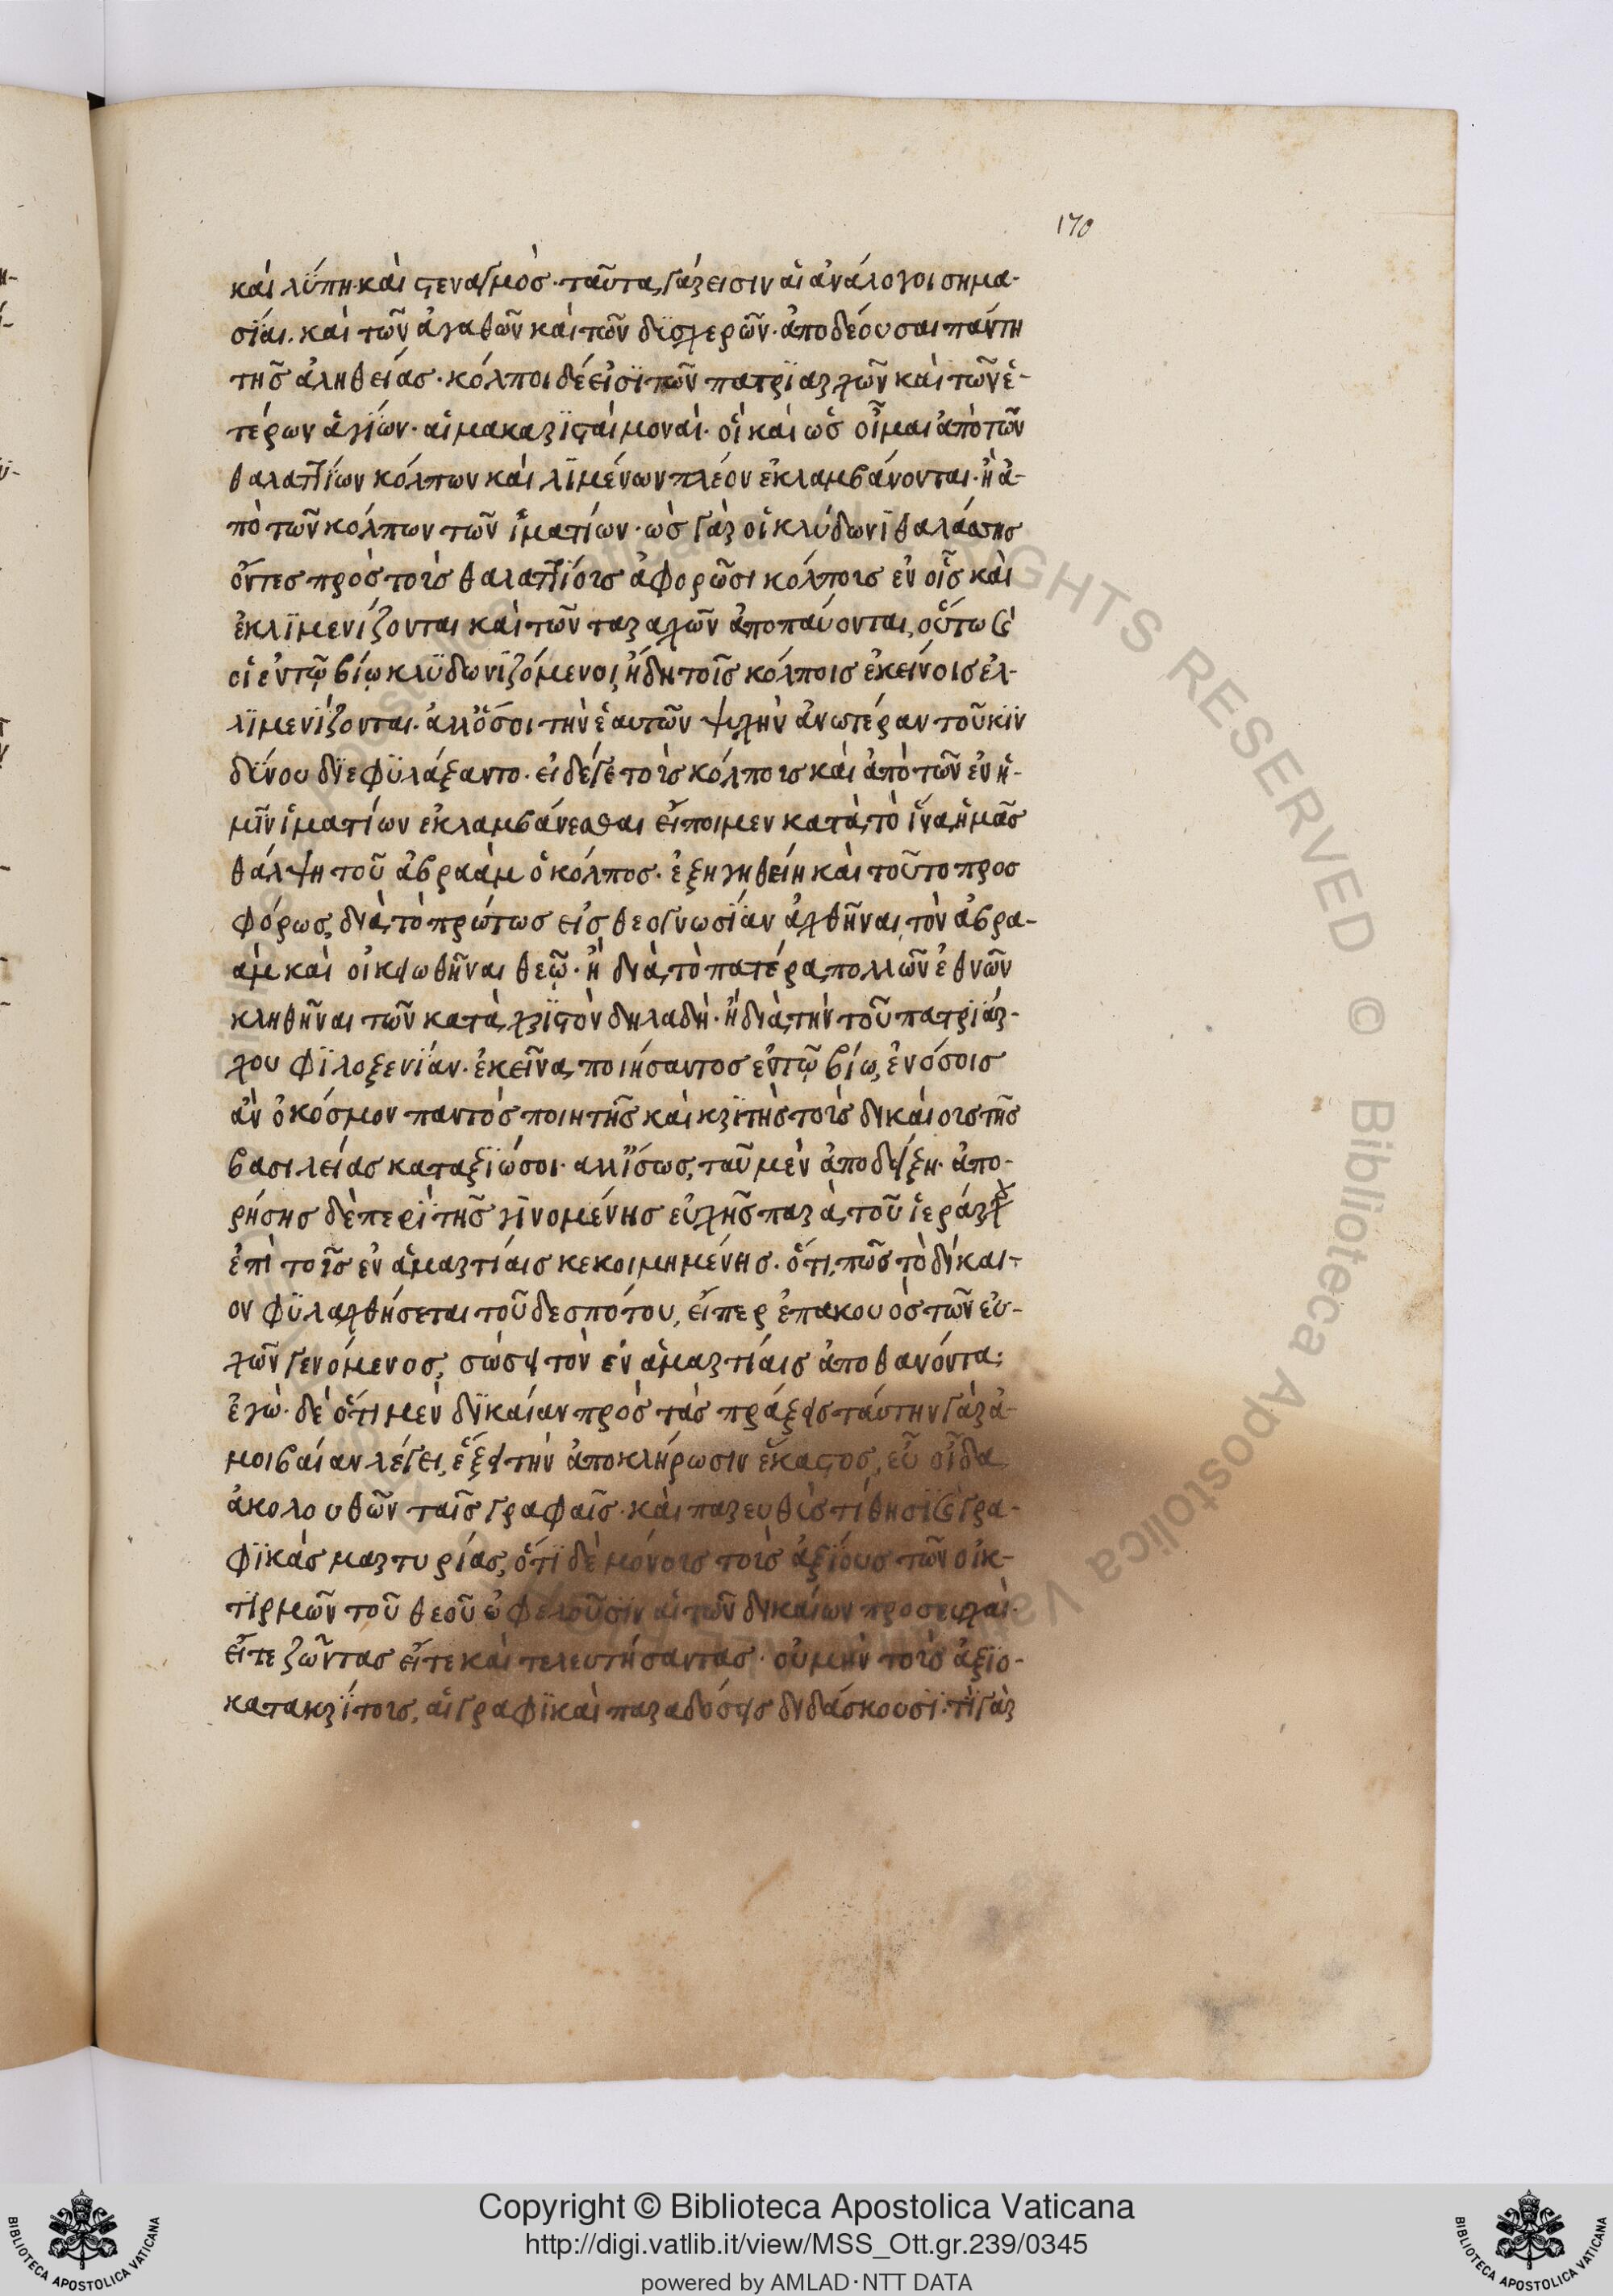 170
καὶ λύπη· καὶ στεναγμὸς· ταῦτα γάρ εἰσιν αἱ ἀνάλογοι σημα-
σΐαι. καὶ τῶν ἀγαθῶν καὶ τῶν δϋσχερῶν· ἀποδέουσαι πάντη
τῆς ἀληθείας· κόλποι δέ εἰσϊ τῶν πατρϊαρχῶν καὶ τῶν ἑ-
τέρων ἁγΐων· αἱ μακαρϊσταὶ μοναὶ· οἱ καὶ ὡς οἶμαι ἀπὸ τῶν
θαλαττΐων κόλπων καὶ λϊμένων πλέον ἐκλαμβάνονται· ἢ ἀ-
πὸ τῶν κόλπων τῶν ἱματίων· ὡς γὰρ οἱ κλύδωνϊ θαλάσσης
ὄντες πρὸς τοὺς θαλαττΐους ἀφορῶσι κόλπους ἐν οἷς καὶ
ἐκλϊμενίζονται καὶ τῶν ταραχῶν ἀποπαύονται, οὕτω καὶ
οἱ ἐν τῷ βίῳ κλϋδωνϊζόμενοι, ἤδη τοῖς κόλποις ἐκείνοις ἐλ-
λϊμενΐζονται. ἀλλ' ὅσοι τὴν ἑαυτῶν ψυχὴν ἀνωτέραν τοῦ κϊν
δΰνου διεφϋλάξαντο· εἰ δέ γε τοὺς κόλπους καὶ ἀπὸ τῶν ἐν ἡ-
μῖν ἱματίων ἐκλαμβάνεσθαι εἴποιμεν κατὰ τὸ ἵνα ἡμᾶς
θάλψη τοῦ ἀβραὰμ ὁ κόλπος· ἐξηγηθείη καὶ τοῦτο προσ
φόρως, διὰ τὸ πρώτως εἰς θεογνωσΐαν ἀχθῆναι τὸν ἀβρα-
ὰμ καὶ οἰκειωθῆναι θεῷ· ἢ διὰ τὸ πατέρα πολλῶν ἐθνῶν
κληθῆναι τῶν κατὰ χρϊστὸν δηλαδὴ· ἢ διὰ τὴν τοῦ πατρϊάρ-
χου φϊλοξενΐαν· ἐκεῖνα ποιήσαντος ἐν τῷ βίῳ, ἐν ὅσοις
ἂν ὁ κόσμον παντὸς ποιητὴς καὶ κρϊτὴς τοὺς δικαίους τῆς
βασιλείας καταξϊώσοι· ἀλλ' ἴσως, ταῦ μὲν ἀποδείξη· ἀπο-
ρήσης δὲ περὶ τῆς γϊνομένης εὐχῆς παρὰ τοῦ ἱεράρχου
ἐπὶ τοῖς ἐν ἁμαρτίαις κεκοιμημένης· ὅτι, πῶς τὸ δίκαι-
ον φϋλαχθήσεται τοῦ δεσπότου, εἴπερ ἐπακουὸς τῶν εὐ-
χῶν γενόμενος, σώσει τὸν ἐν ἁμαρτίαις ἀποθανόντα;
ἐγὼ· δὲ ὅτι μὲν δϊκαίαν πρὸς τὰς πράξεις ταύτην γὰρ ἀ-
μοιβαίαν λέγει, ἕξει τὴν ἀποκλήρωσιν ἕκαστος, εὖ οἶδα
ἀκολουθῶν ταῖς γραφαῖς· καὶ παρευθὺς τίθησϊ καὶ γρα-
φϊκὰς μαρτυρίας, ὅτϊ δὲ μόνους τοὺς ἀξΐους τῶν οἰκ-
τιρμῶν τοῦ θεοῦ ὠφελοῦσϊν αἱ τῶν δικαίων προσευχαὶ·
εἴτε ζῶντας εἴτε καὶ τελευτήσαντας· οὐ μὴν τοὺς ἀξϊο-
κατακρΐτους, αἱ γραφϊκαὶ παραδόσεις διδάσκουσϊ· τί γὰρ
Copyright © Biblioteca Apostolica Vaticana
http://digi.vatlib.it/view/MSS_Ott.gr.239/0345
powered by AMLAD·NTT DATA